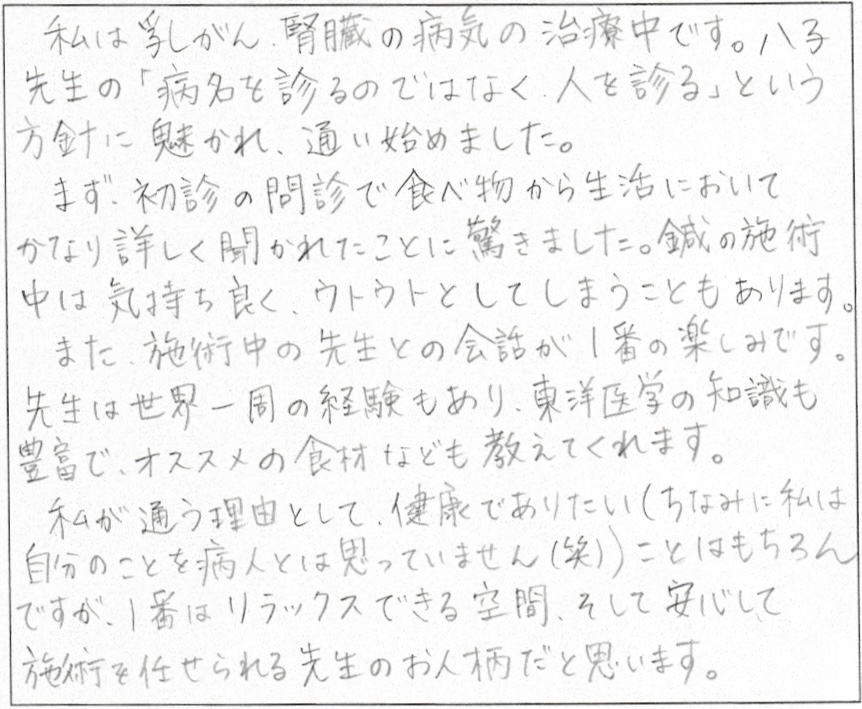 私は乳がん、腎臓の病気の治療中です。八子
先生の「病名を診るのではなく、人を診る」という
方針に魅かれ、通い始めました。
まず、初診の問診で食べ物から生活において
かなり詳しく聞かれたことに驚きました。鍼の施術
中は気持ち良く、ウトウトとしてしまうこともあります。
また、施術中の先生との会話が1番の楽しみです。
先生は世界一周の経験もあり、東洋医学の知識も
豊富で、オススメの食材なども教えてくれます。
私が通う理由として、健康でありたい(ちなみに私は
自分のことを病人とは思っていません(笑))ことはもちろん
ですが、1番はリラックスできる空間、そして安心して
施術を任せられる先生のお人柄だと思います。